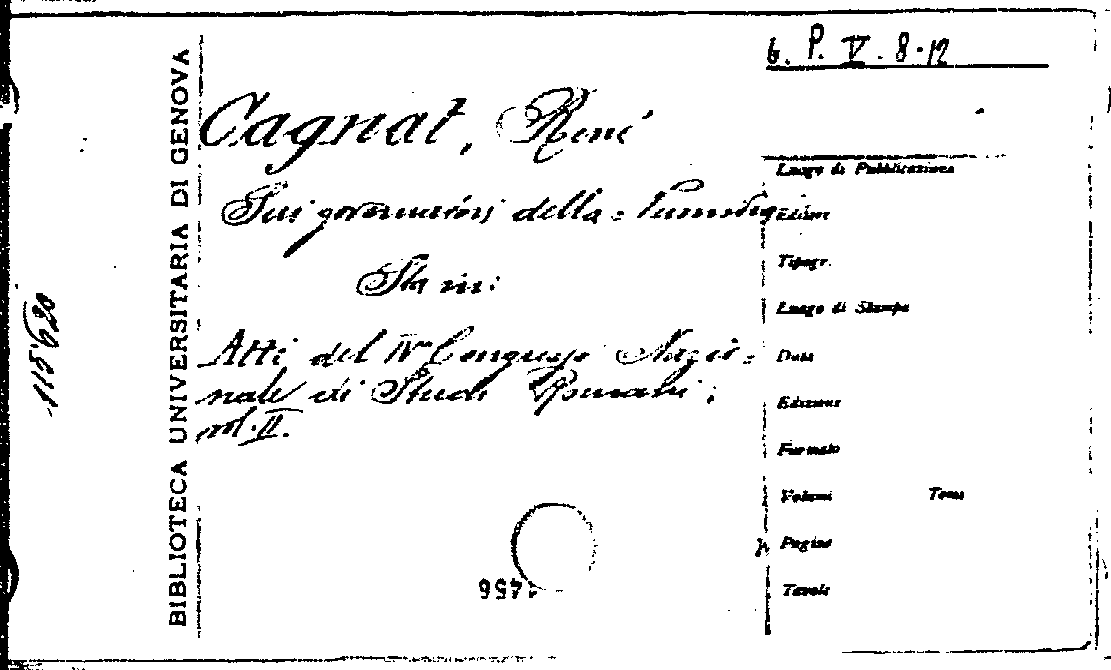 6. P. V. 8-12
BIBLIOTECA UNIVERSITARIA DI GENOVA
Cagnat, René
Sui governatori della Numidia
Atti del IV° Congresso Nazio=
nale di Studi Romani;
vol. II.
Luogo di Pubblicazione
Editore
Tipogr.
Luogo di Stampa
Data
Edizione
Formato
Volumi Tomi
Pagine
Tavole
115620